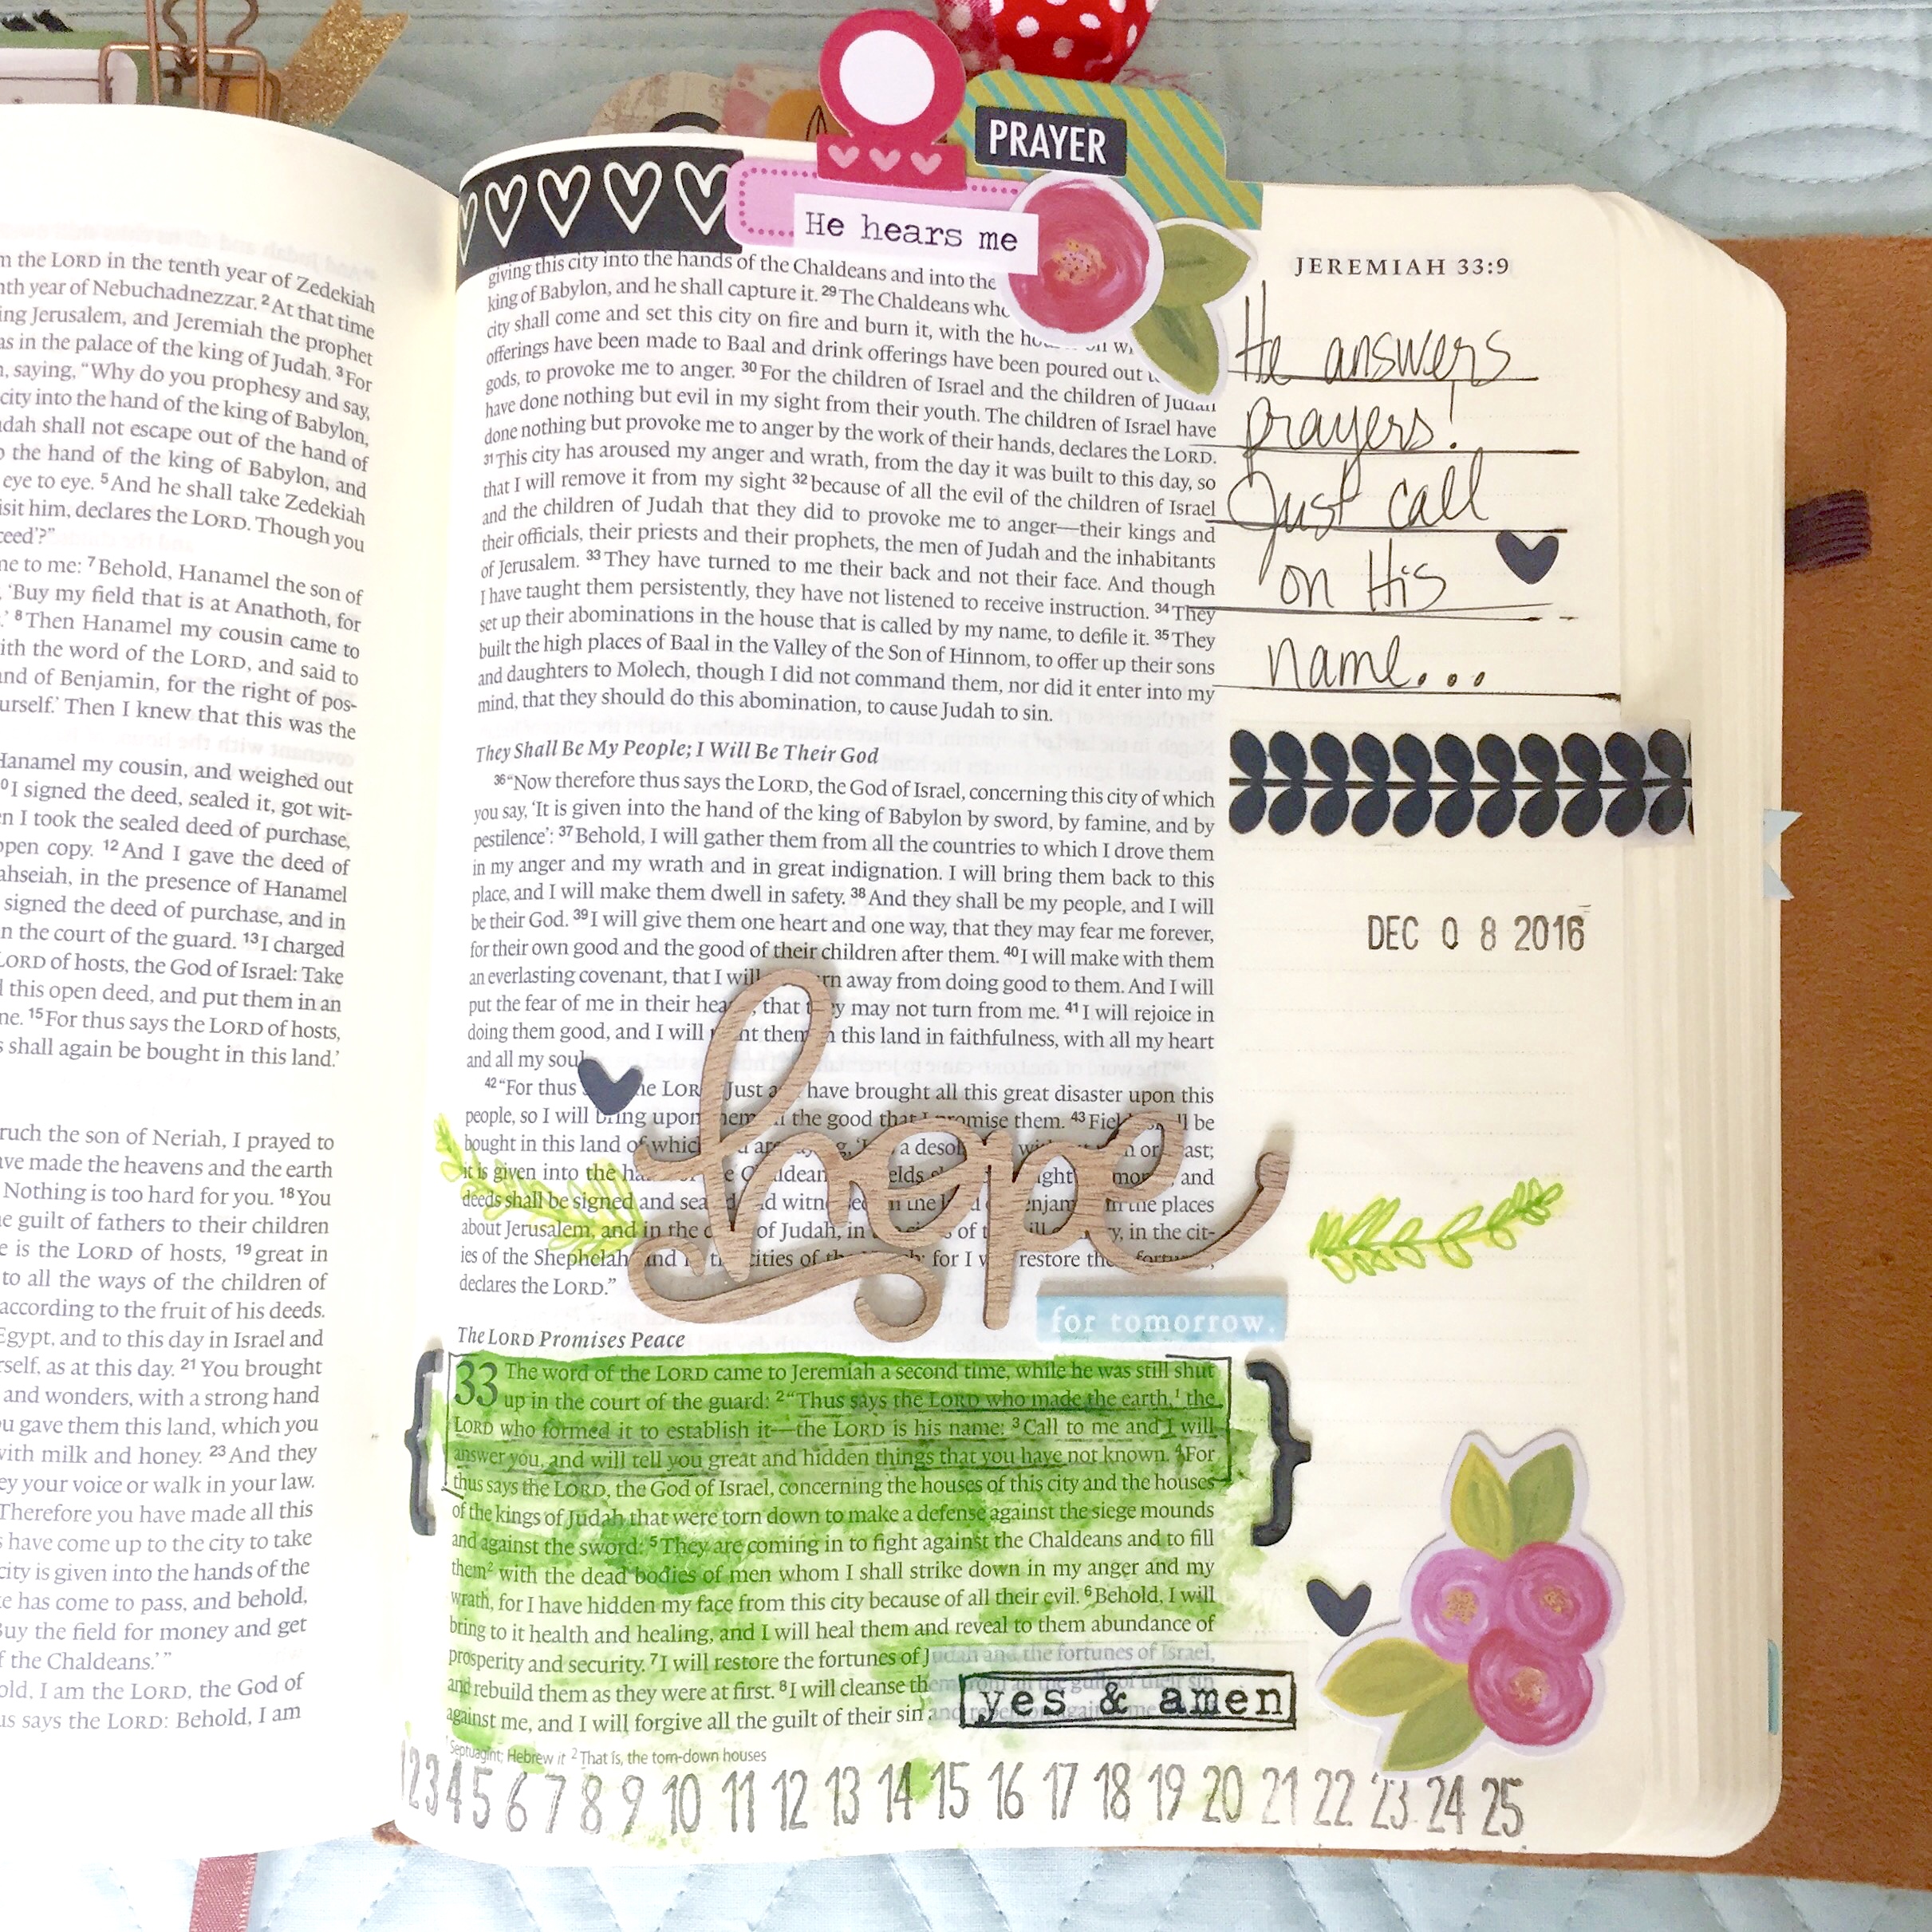 m the LORD in the tenth year of Zedekiah
nth year of Nebuchadnezzar. 2 At that time
ing Jerusalem, and Jeremiah the prophet
as in the palace of the king of Judah. 3 For
n, saying, "Why do you prophesy and say,
city into the hand of the king of Babylon,
dah shall not escape out of the hand of
o the hand of the king of Babylon, and
eye to eye. 5 And he shall take Zedekiah
isit him, declares the LORD. Though you
ceed'?"
ne to me: 7 Behold, Hanamel the son of
'Buy my field that is at Anathoth, for
.' 8 Then Hanamel my cousin came to
ith the word of the LORD, and said to
nd of Benjamin, for the right of pos-
urself.' Then I knew that this was the
Hanamel my cousin, and weighed out
0 I signed the deed, sealed it, got wit-
en I took the sealed deed of purchase,
open copy. 12 And I gave the deed of
ahseiah, in the presence of Hanamel
signed the deed of purchase, and in
n the court of the guard. 13 I charged
LORD of hosts, the God of Israel: Take
l this open deed, and put them in an
ne. 15 For thus says the LORD of hosts,
s shall again be bought in this land.'
ruch the son of Neriah, I prayed to
ave made the heavens and the earth
Nothing is too hard for you. 18 You
e guilt of fathers to their children
e is the LORD of hosts, 19 great in
to all the ways of the children of
according to the fruit of his deeds.
Egypt, and to this day in Israel and
rself, as at this day. 21 You brought
and wonders, with a strong hand
u gave them this land, which you
with milk and honey. 23 And they
ey your voice or walk in your law.
Therefore you have made all this
s have come up to the city to take
city is given into the hands of the
e has come to pass, and behold,
Buy the field for money and get
f the Chaldeans.'"
old, I am the LORD, the God of
us says the LORD: Behold, I am
PRAYER
He hears me
giving this city into the hands of the Chaldeans and into the
king of Babylon, and he shall capture it. 29 The Chaldeans who
city shall come and set this city on fire and burn it, with the
offerings have been made to Baal and drink offerings have been poured out
gods, to provoke me to anger. 30 For the children of Israel and the children of Judah
have done nothing but evil in my sight from their youth. The children of Israel have
done nothing but provoke me to anger by the work of their hands, declares the LORD.
31 This city has aroused my anger and wrath, from the day it was built to this day, so
that I will remove it from my sight 32 because of all the evil of the children of Israel
and the children of Judah that they did to provoke me to anger—their kings and
their officials, their priests and their prophets, the men of Judah and the inhabitants
of Jerusalem. 33 They have turned to me their back and not their face. And though
I have taught them persistently, they have not listened to receive instruction. 34 They
set up their abominations in the house that is called by my name, to defile it. 35 They
built the high places of Baal in the Valley of the Son of Hinnom, to offer up their sons
and daughters to Molech, though I did not command them, nor did it enter into my
mind, that they should do this abomination, to cause Judah to sin.
They Shall Be My People; I Will Be Their God
36 "Now therefore thus says the LORD, the God of Israel, concerning this city of which
you say, 'It is given into the hand of the king of Babylon by sword, by famine, and by
pestilence': 37 Behold, I will gather them from all the countries to which I drove them
in my anger and my wrath and in great indignation. I will bring them back to this
place, and I will make them dwell in safety. 38 And they shall be my people, and I will
be their God. 39 I will give them one heart and one way, that they may fear me forever,
for their own good and the good of their children after them. 40 I will make with them
an everlasting covenant, that I will rn away from doing good to them. And I will
put the fear of me in their hea that they may not turn from me. 41 I will rejoice in
doing them good, and I will nt them n this land in faithfulness, with all my heart
and all my soul
42 "For thus the LOR Just a have brought all this great disaster upon this
people, so I will bring upon them the good that I promise them. 43 Fiel ll be
bought in this land of which a desol
it is given into the ha e C ldean elds ight mon and
deeds shall be signed and sea d witnes in the enjam in the places
about Jerusalem, and in the c of Judah, in of t ill y, in the cit-
ies of the Shephelah and cities of for I restore the fortu
declares the LORD."
hope
for tomorrow.
The LORD Promises Peace
33 The word of the LORD came to Jeremiah a second time, while he was still shut
up in the court of the guard: 2 "Thus says the LORD who made the earth,1 the
LORD who formed it to establish it—the LORD is his name: 3 Call to me and I will
answer you, and will tell you great and hidden things that you have not known. 4 For
thus says the LORD, the God of Israel, concerning the houses of this city and the houses
of the kings of Judah that were torn down to make a defense against the siege mounds
and against the sword: 5 They are coming in to fight against the Chaldeans and to fill
them2 with the dead bodies of men whom I shall strike down in my anger and my
wrath, for I have hidden my face from this city because of all their evil. 6 Behold, I will
bring to it health and healing, and I will heal them and reveal to them abundance of
prosperity and security. 7 I will restore the fortunes of Judah and the fortunes of Israel,
and rebuild them as they were at first. 8 I will cleanse them from all the guilt of their sin
against me, and I will forgive all the guilt of their sin and rebellion against me
yes & amen
1 Septuagint; Hebrew it 2 That is, the torn-down houses
1 2 3 4 5 6 7 8 9 10 11 12 13 14 15 16 17 18 19 20 21 22 23 24 25
JEREMIAH 33:9
He answers
prayers!
Just call
on His
name...
DEC 08 2016